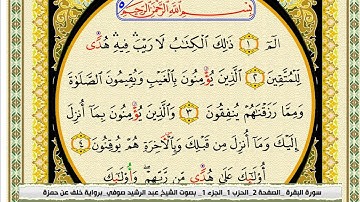 بِسْمِ اللَّهِ الرَّحْمَٰنِ الرَّحِيمِ
الٓمٓ ١ ذَٰلِكَ الْكِتَٰبُ لَا رَيْبَ فِيهِ هُدًى
لِّلْمُتَّقِينَ ٢ الَّذِينَ يُؤْمِنُونَ بِالْغَيْبِ وَيُقِيمُونَ الصَّلَوٰةَ
وَمِمَّا رَزَقْنَٰهُمْ يُنفِقُونَ ٣ وَالَّذِينَ يُؤْمِنُونَ بِمَآ أُنزِلَ
إِلَيْكَ وَمَآ أُنزِلَ مِن قَبْلِكَ وَبِالْأَخِرَةِ هُمْ يُوقِنُونَ ٤
أُوْلَٰٓئِكَ عَلَىٰ هُدًى مِّن رَّبِّهِمْ وَأُوْلَٰٓئِكَ
سورة البقرة _الصفحة 2_الحزب 1_الجزء 1_ بصوت الشيخ عبد الرشيد صوفي_ برواية خلف عن حمزة